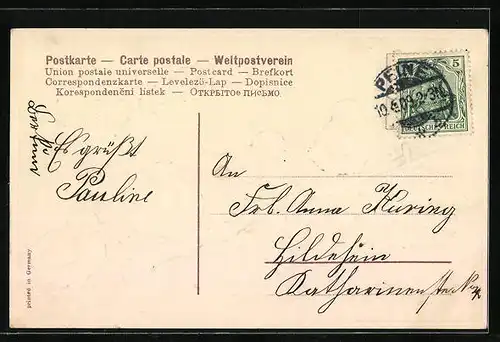 Postkarte — Carte postale — Weltpostverein
Union postale universelle — Postcard — Brefkort
Correspondenzkarte — Levelező-Lap — Dopisnice
Korespondenční listek — ОТКРЫТОЕ ПИСЬМО
PEINE
10.4.09.2-3N.
5
DEUTSCHES REICH
Es grüßt
Pauline
An
Frl. Anna Küring
Hildesheim
Katharinenstr No
printed in Germany